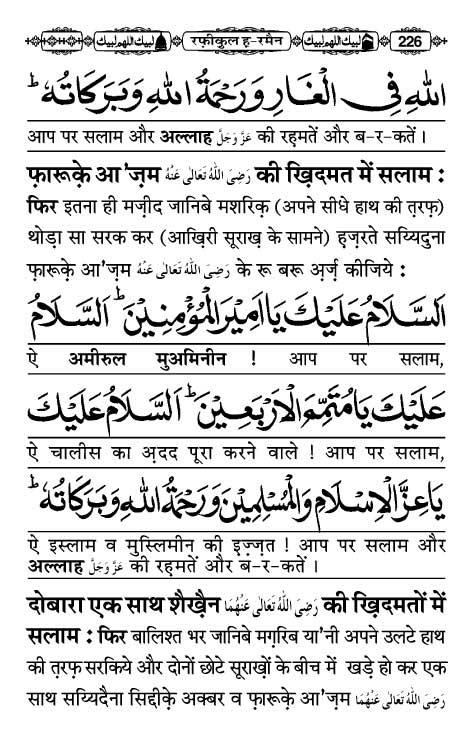 لبيك اللهم لبيك रफ़ीकुल ह-रमैन لبيك اللهم لبيك 226
اللهِ فِى الْغَارِ وَرَحْمَةُ اللهِ وَبَرَكَاتُهٗ ؕ
आप पर सलाम और अल्लाह عَزَّوَجَلَّ की रह़मतें और ब-र-कतें ।
फ़ारूक़े आ'ज़म رَضِىَ اللهُ تَعَالٰى عَنْهُ की ख़िदमत में सलाम :
फिर इतना ही मज़ीद जानिबे मशरिक़ (अपने सीधे हाथ की त़रफ़)
थोड़ा सा सरक कर (आख़िरी सूराख़ के सामने) ह़ज़रते सय्यिदुना
फ़ारूक़े आ'ज़म رَضِىَ اللهُ تَعَالٰى عَنْهُ के रू बरू अ़र्ज़ कीजिये :
اَلسَّلَامُ عَلَيْكَ يَا اَمِيْرَ الْمُؤْمِنِيْنَ ؕ اَلسَّلَامُ
ऐ अमीरुल मुअमिनीन ! आप पर सलाम,
عَلَيْكَ يَا مُتَمِّمَ الْاَرْبَعِيْنَ ؕ اَلسَّلَامُ عَلَيْكَ
ऐ चालीस का अ़दद पूरा करने वाले ! आप पर सलाम,
يَا عِزَّ الْاِسْلَامِ وَالْمُسْلِمِيْنَ وَرَحْمَةُ اللهِ وَبَرَكَاتُهٗ ؕ
ऐ इस्लाम व मुस्लिमीन की इ़ज़्ज़त ! आप पर सलाम और
अल्लाह عَزَّوَجَلَّ की रह़मतें और ब-र-कतें ।
दोबारा एक साथ शैख़ैन رَضِىَ اللهُ تَعَالٰى عَنْهُمَا की ख़िदमतों में
सलाम : फिर बालिश्त भर जानिबे मग़रिब या'नी अपने उलटे हाथ
की त़रफ़ सरकिये और दोनों छोटे सूराख़ों के बीच में खड़े हो कर एक
साथ सय्यिदैना सिद्दीक़े अक्बर व फ़ारूक़े आ'ज़म رَضِىَ اللهُ تَعَالٰى عَنْهُمَا